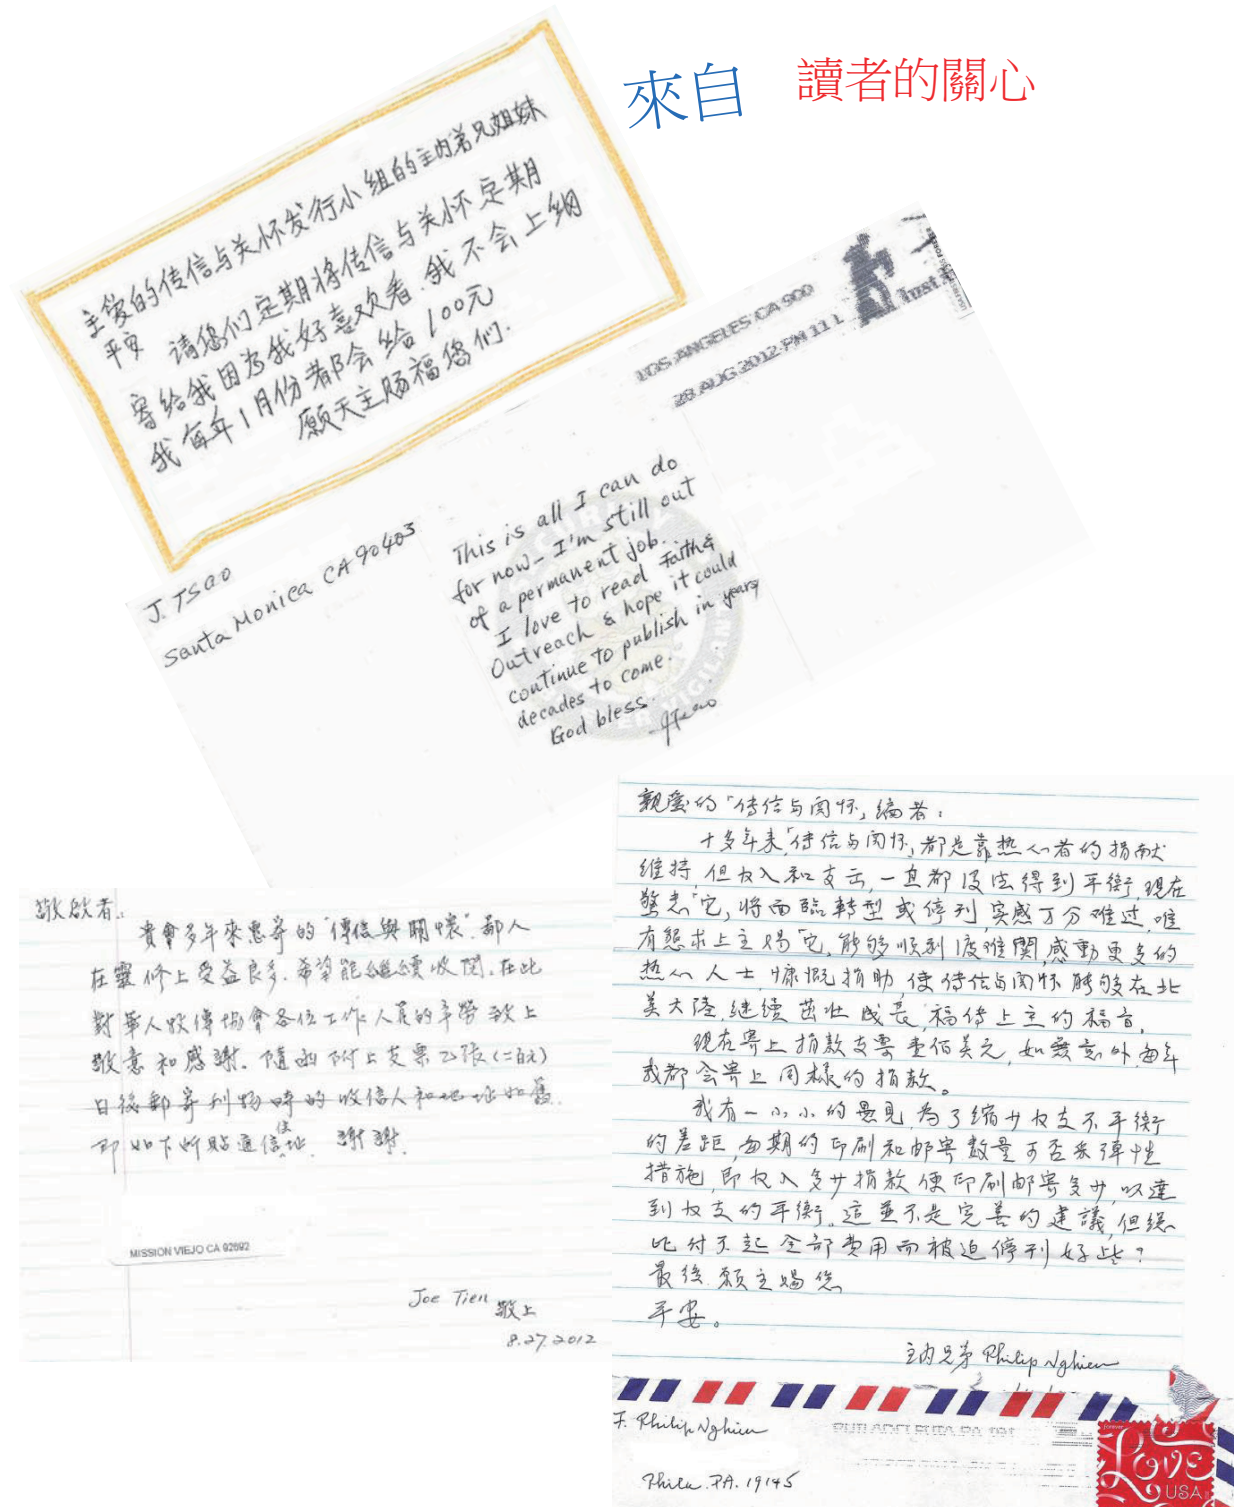 來自 讀者的關心
主爱的传信与关怀发行小组的主内弟兄姐妹
平安
请您们定期将传信与关怀定期
寄给我因为我好喜欢看.我不会上纲
我每年1月份都会给100元
愿天主赐福您们.
LOS ANGELES CA 900
28 AUG 2012 PM 11 L
J. TSAO
Santa Monica CA 90403
This is all I can do
for now - I'm still out
of a permanent job.
I love to read Faith &
Outreach & hope it could
continue to publish in years,
decades to come.
God bless.
敬啟者:
貴會多年來惠寄的"傳信與關懷".鄙人
在靈修上受益良多.希望能繼續收閱.在此
對華人歸傳協會各位工作人員的辛勞致上
敬意和感謝.隨函附上支票乙張(二百元)
日後郵寄刊物時的收信人和地址如舊.
即如下所貼通信住址.謝謝.
MISSION VIEJO CA 92692
Joe Tien 敬上
8.27.2012
親愛的「传信与関怀」编者:
十多年来「传信与関怀」都是靠热心者的捐献
维持,但収入和支出,一直都没法得到平衡,现在
將面臨转型或停刊,实感万分难过,唯
有懇求上主赐"它"能够顺利渡难関,感動更多的
热心人士,慷慨捐助,使传信与関怀能够在北
美大陸,继续茁壮成長,福传上主的福音。
现在寄上捐款支票壹佰美元,如無意外,每年
我都会寄上同樣的捐款。
我有一小小的愚見,为了缩少収支不平衡
的差距,每期的印刷和邮寄数量可否采弹性
措施,即収入多少捐款便印刷邮寄多少,以達
到収支的平衡。這並不是完善的建議,但總
比付不起全部费用而被迫停刊好些?
最後,願主賜您
平安。
主内兄弟 Philip Nghiem
F. Philip Nghiem
PHILADELPHIA PA 191
Phila. PA. 19145
LOVE
USA